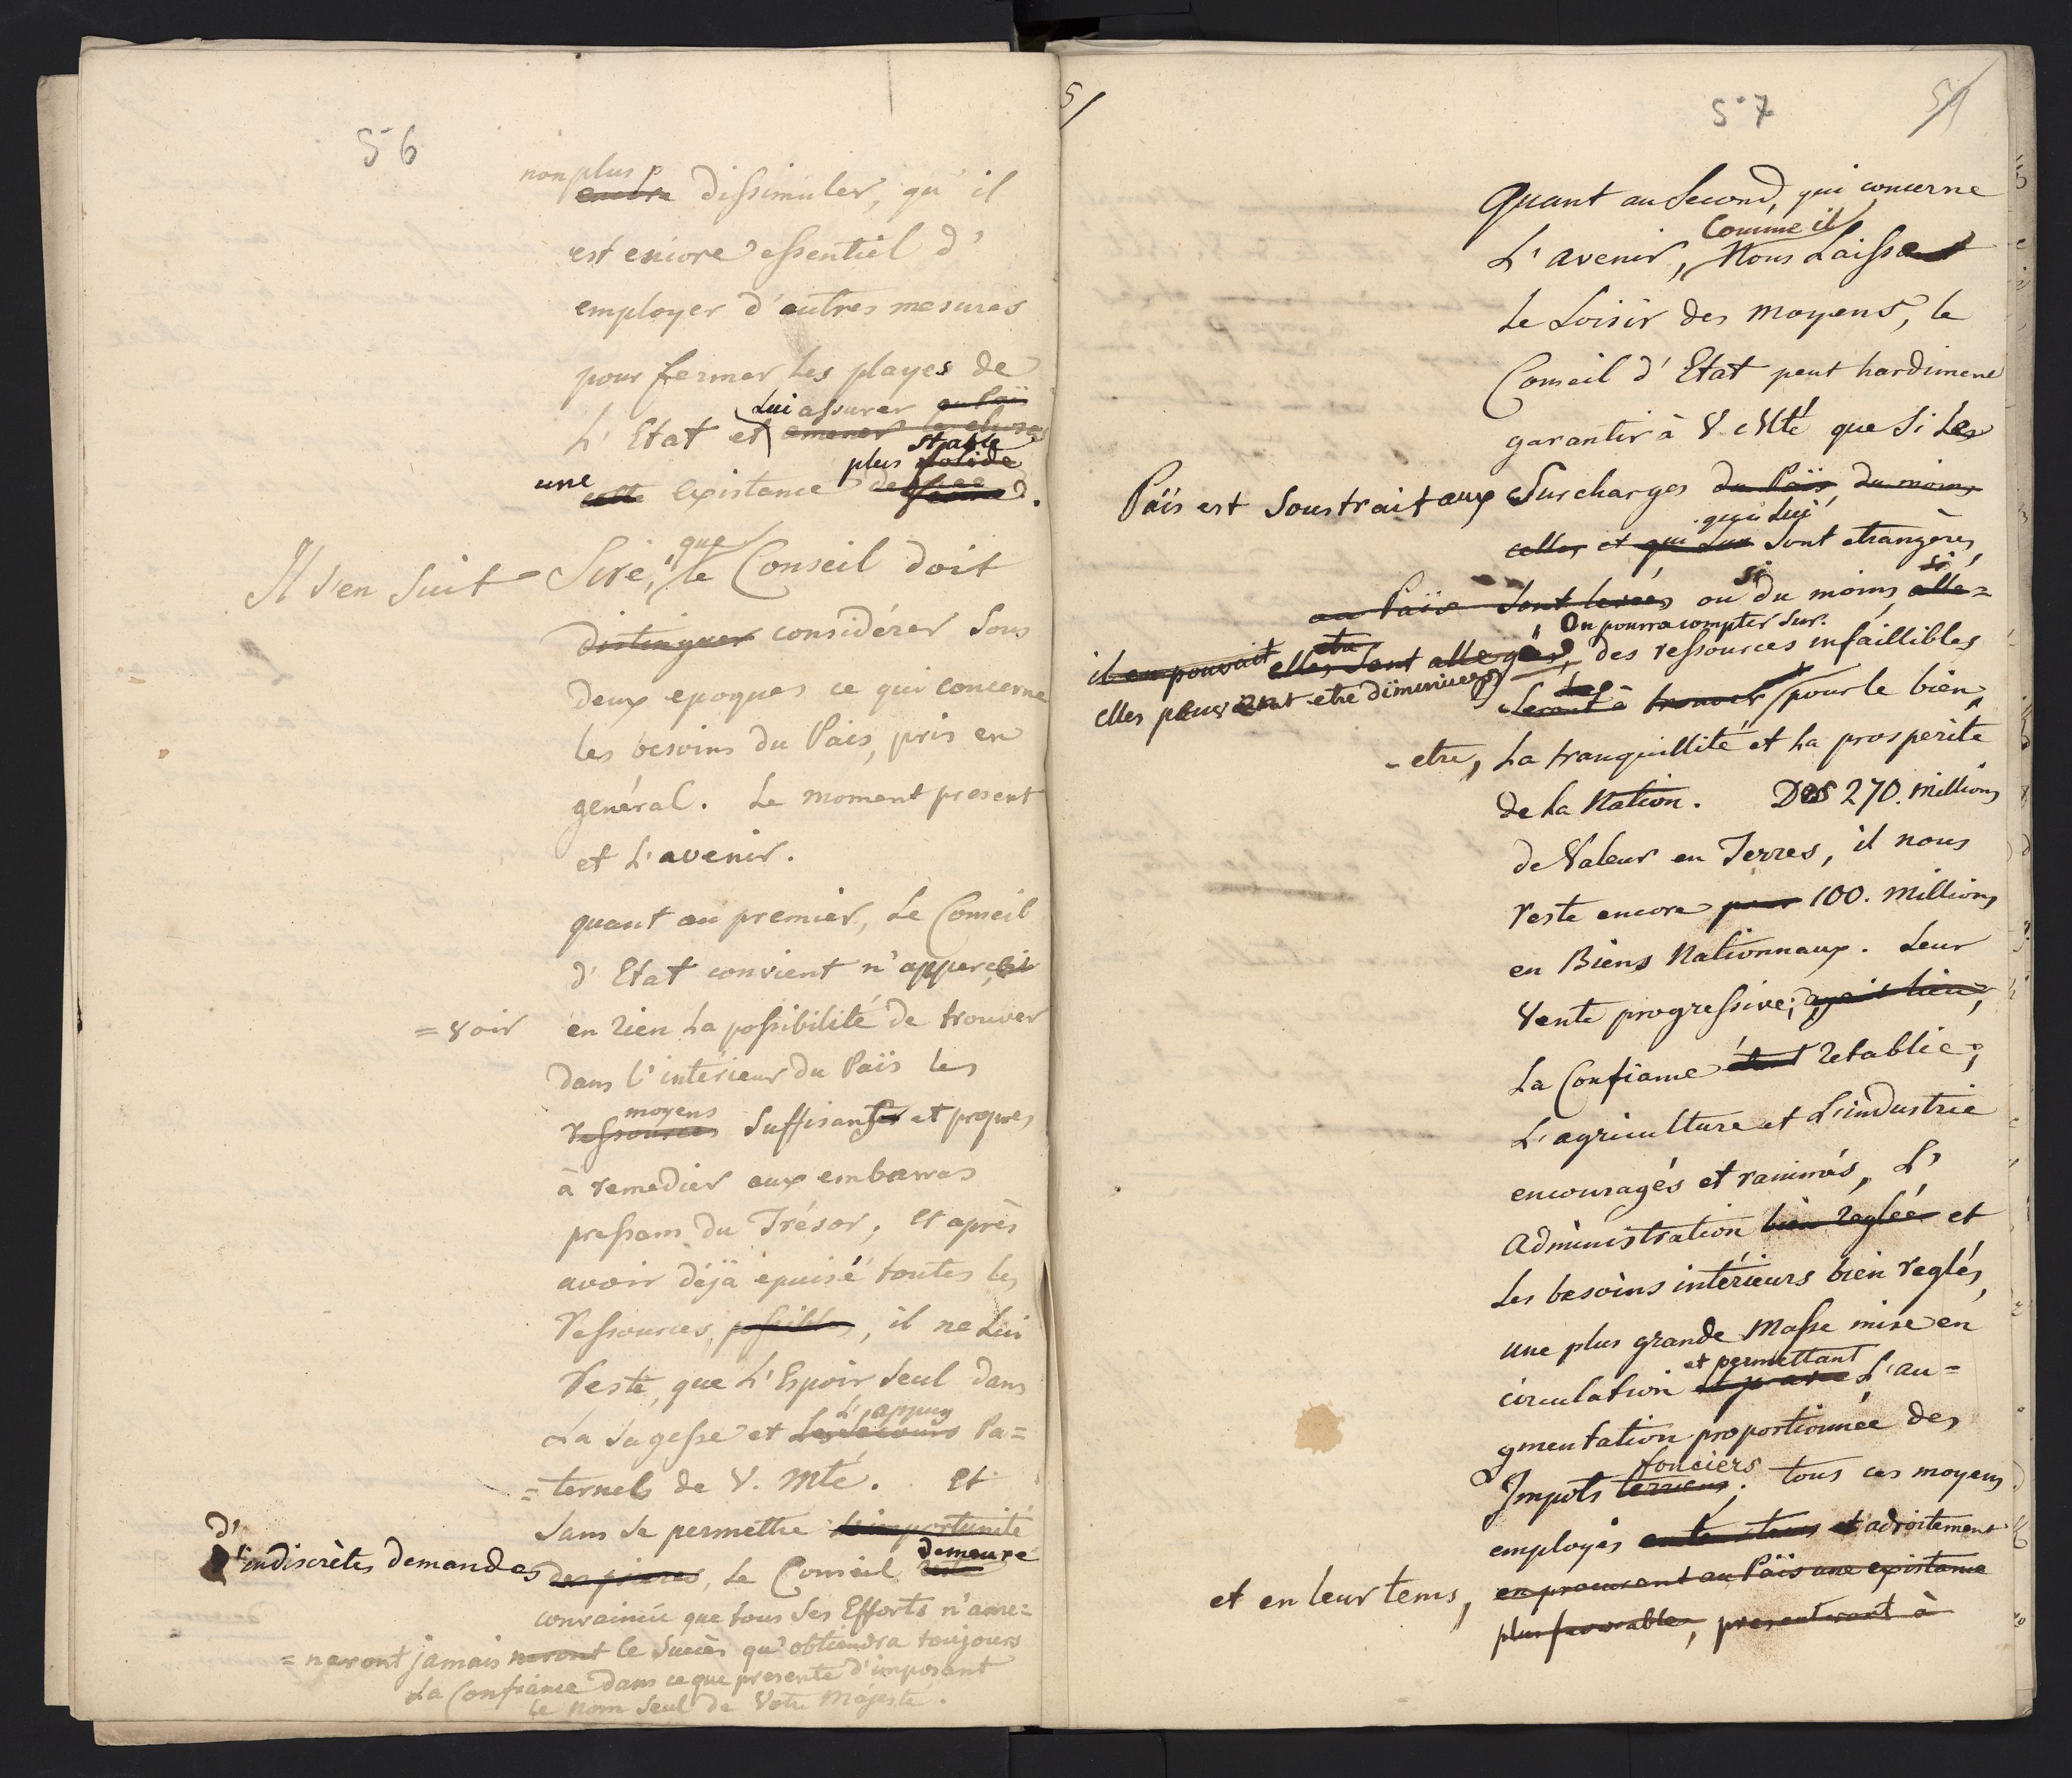 56
non plus
dissimuler, qu'il
est encore essentiel d'
employer d'autres mesures
pour fermer les playes de
Lui assurer au Païs
L'Etat et amener la chose
stable
plus solide
une cette existance
Il s'en suit Sire, que le Conseil doit
distinguer considérer sous
deux epoques ce qui concerne
les besoins du Païs, pris en
genéral. Le moment present
et L'avenir.
quant au premier, Le Conseil
d'Etat convient n'apperce
=voir en rien la possibilité de trouver
dans l'intérieur du Païs les
moyens
ressources suffisants et propres
à remedier aux embarras
pressans du Trésor; et après
avoir déjà epuisé toutes les
ressources possibles, il ne lui
reste, que L'Espoir seul dans
L'appuy
La sagesse et Les secours Pa=
=ternels de V. Mté. Et
sans se permettre L'importunité
d'indiscrètes demandes des prieres, le Conseil demeure
convaincu que tous ses Efforts n'ame=
=neront jamais neront le succès qu'obtiendra toujours
La Confiance dans ce que presente d'imposant
le nom seul de Votre Majesté.
5/
57
Quant au second, qui concerne
Comme il
L'avenir, Nous Laissant
Le Loisir des moyens, le
Conseil d'Etat peut hardiment
garantir à V. Mté que si Les
Païs est soustrait aux Surcharges du Païs, du moins
qui Lui
celles et qui Lui sont etrangères,
au Païs sont levées ou si du moins si elle=
On pourra compter sur
il en pouvait etre elles sont allegées, des ressources infaillibles
elles peuvent etre diminuées
seront à trouver pour le bien
-etre, La tranquillité et la prosperité
de La Nation. Des 270. millions
de Valeur en Terres, il nous
reste encore pour 100. millions
en Biens Nationnaux. Leur
Vente progressive; ayant lieu,
La Confiance étant retablie;
L'agriculture et L'industrie
encouragés et ranimés, L'
Administration bien reglée et
Les besoins intérieurs bien reglés,
une plus grande Masse mise en
et permettant
circulation L'au=
gmentation proportionnée des
fonciers
Impots terriens; tous ces moyens
employés et adroitement
et en leur tems, en procurant au Païs une existance
plus favorable, presenteront à